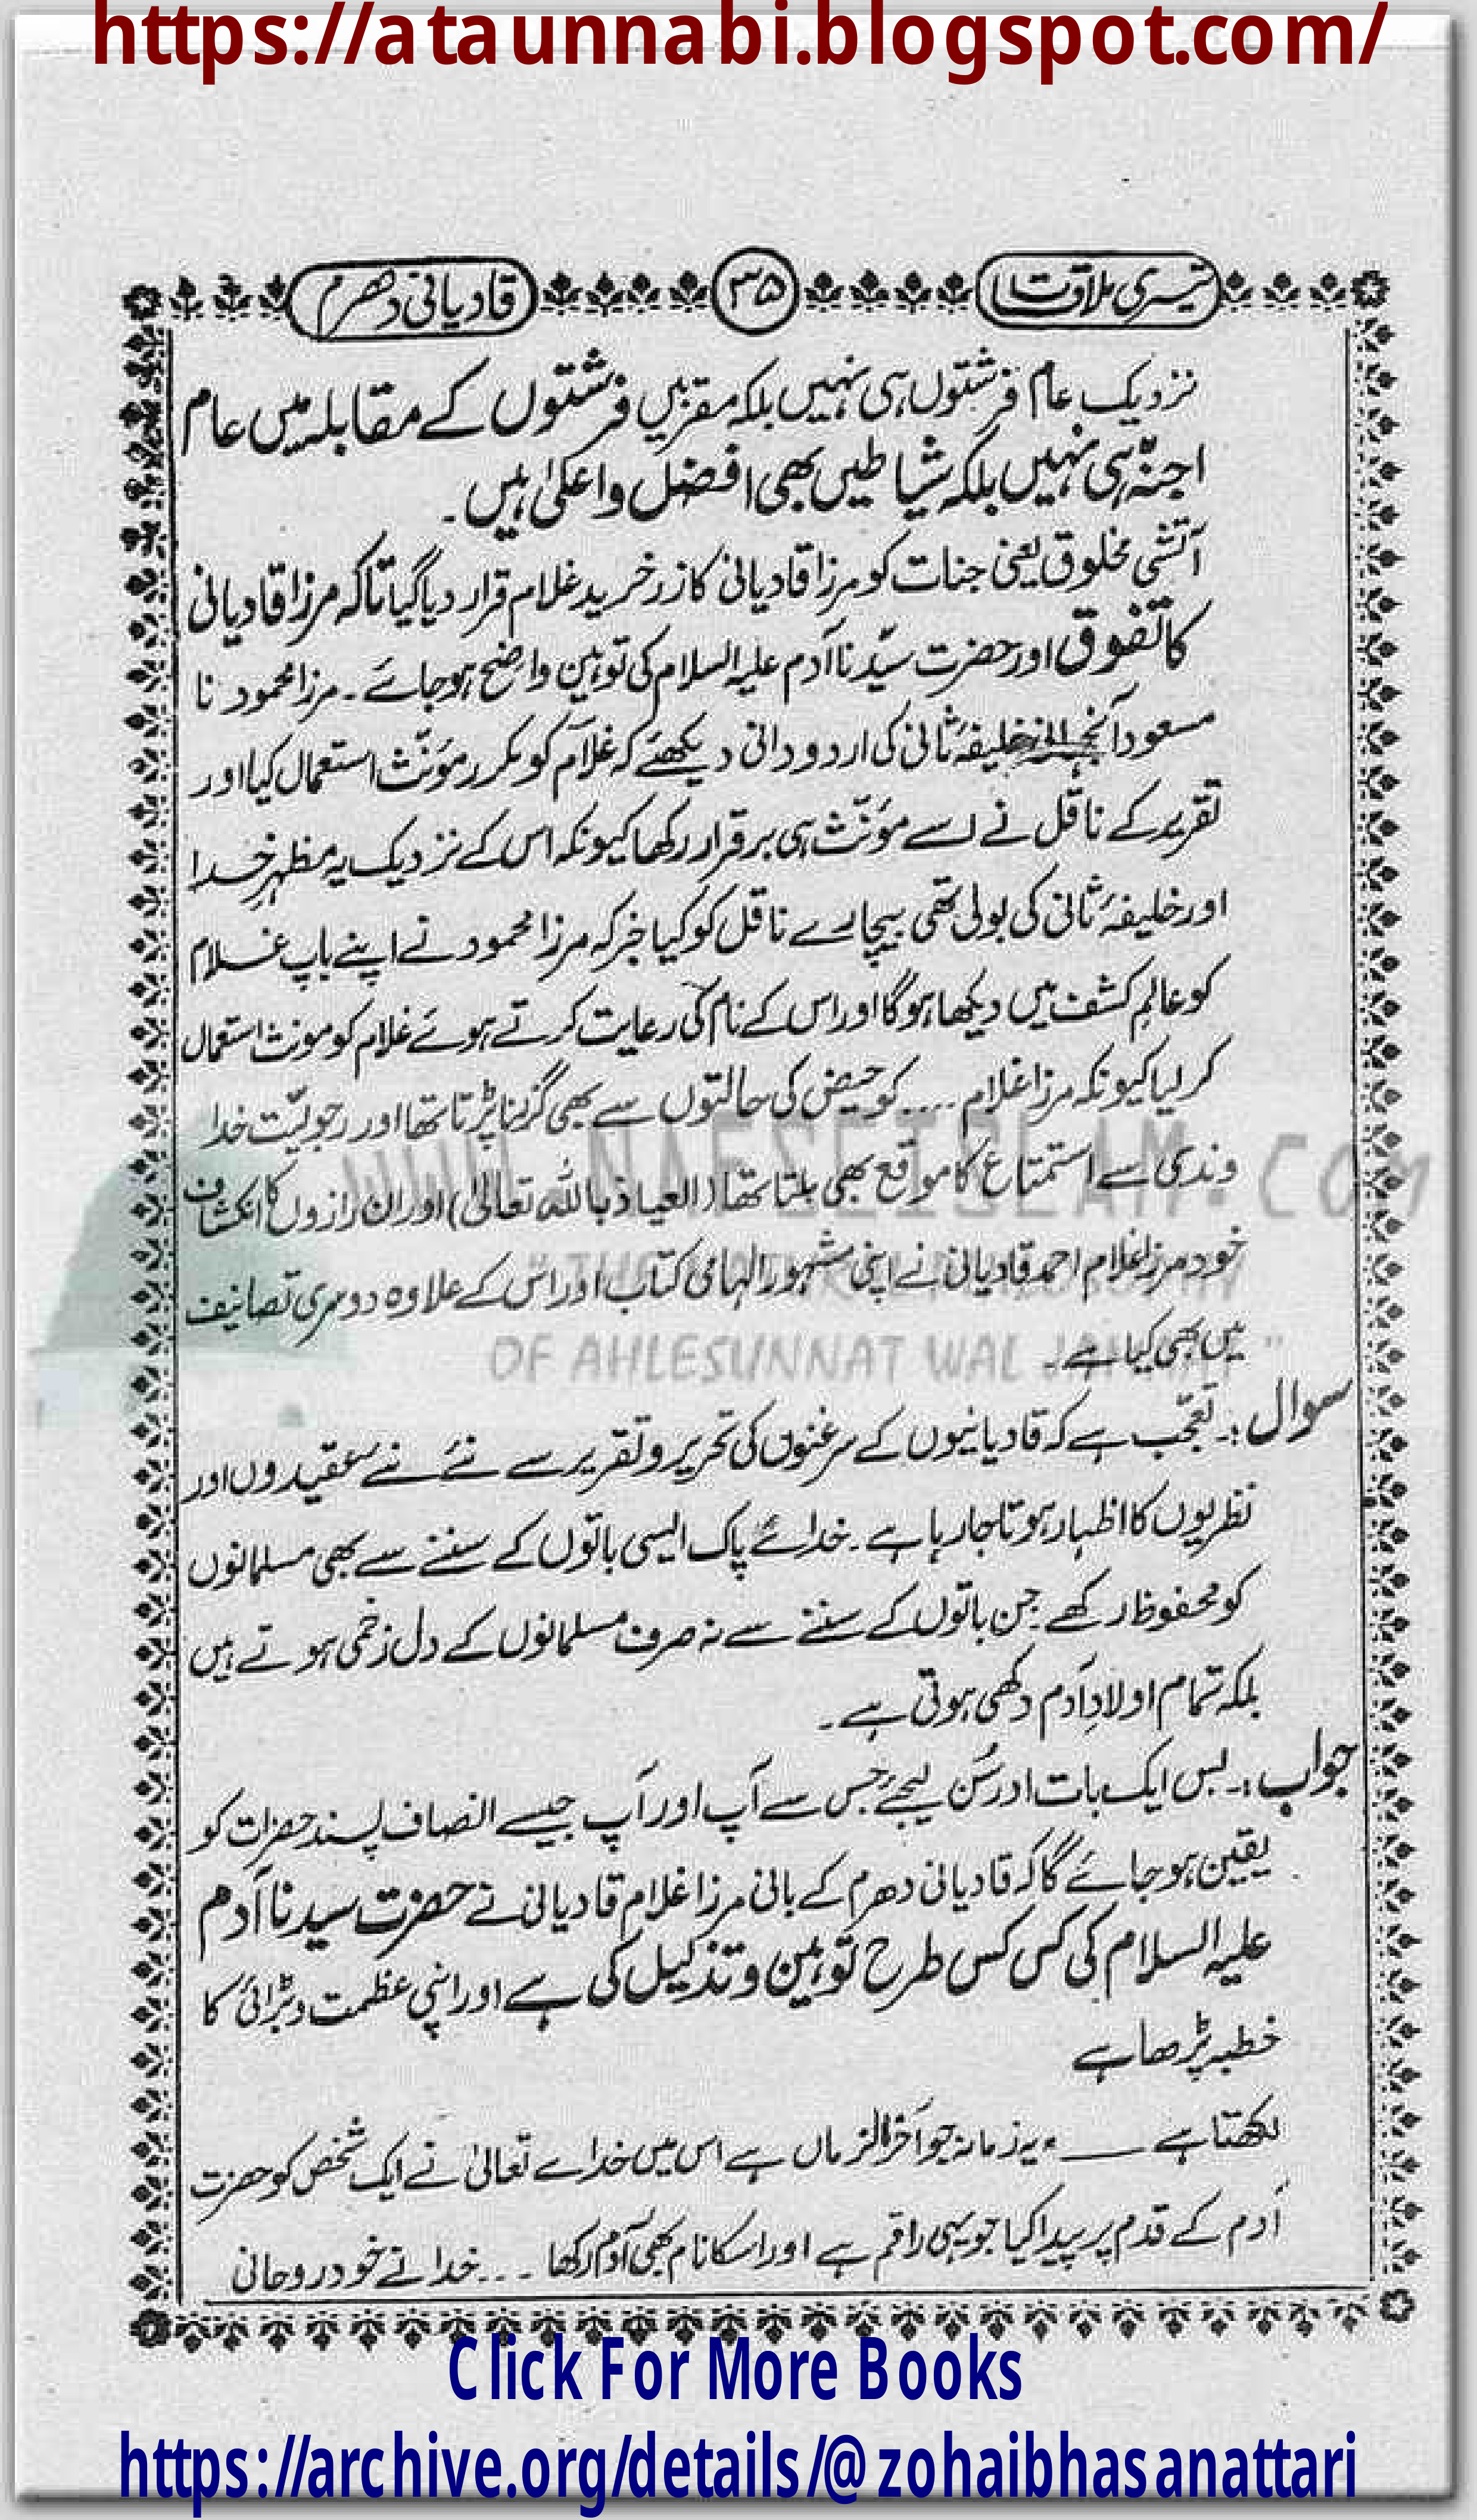 https://ataunnabi.blogspot.com/
تیسری ملاقات ۳۵ قادیانی دھرم
نزدیک عام فرشتوں ہی نہیں بلکہ مقربین فرشتوں کے مقابلہ میں عام
اجنّہ ہی نہیں بلکہ شیاطیں بھی افضل و اعلیٰ ہیں۔
آتشی مخلوق یعنی جنات کو مرزا قادیانی کا زر خرید غلام قرار دیا گیا تاکہ مرزا قادیانی
کا تفوق اور حضرت سیّدنا آدم علیہ السلام کی توہین واضح ہو جائے۔ مرزا محمود نا
مسعود آنجہانی خلیفۂ ثانی کی اردو دانی دیکھئے کہ غلام کو مکرر مؤنّث استعمال کیا اور
تقریر کے ناقل نے اسے مؤنّث ہی برقرار رکھا کیونکہ اس کے نزدیک یہ مظہرِ خدا
اور خلیفۂ ثانی کی بولی تھی بیچارے ناقل کو کیا خبر کہ مرزا محمود نے اپنے باپ غلام
کو عالمِ کشف میں دیکھا ہوگا اور اس کے نام کی رعایت کرتے ہوئے غلام کو مونث استعمال
کر لیا کیونکہ مرزا غلام .... کو حیض کی حالتوں سے بھی گزرنا پڑتا تھا اور رجولیّت خدا
وندی سے استمتاع کا موقع بھی ملتا تھا (العیاذ باللہ تعالیٰ) اور ان رازوں کا انکشاف
خود مرزا غلام احمد قادیانی نے اپنی مشہور الہامی کتاب اور اس کے علاوہ دوسری تصانیف
میں بھی کیا ہے۔
WWW.NAFSEISLAM.COM
OF AHLESUNNAT WAL JAMAAT "
سوال :۔ تعجّب ہے کہ قادیانیوں کے سرغنوں کی تحریر و تقریر سے نئے نئے عقیدوں اور
نظریوں کا اظہار ہوتا جا رہا ہے۔ خدائے پاک ایسی باتوں کے سننے سے بھی مسلمانوں
کو محفوظ رکھے جن باتوں کے سننے سے نہ صرف مسلمانوں کے دل زخمی ہوتے ہیں
بلکہ تمام اولادِ آدم دکھی ہوتی ہے۔
جواب :۔ بس ایک بات اور سُن لیجئے جس سے آپ اور آپ جیسے انصاف پسند حضرات کو
یقین ہو جائے گا کہ قادیانی دھرم کے بانی مرزا غلام قادیانی نے حضرت سیدنا آدم
علیہ السلام کی کس کس طرح توہین و تذلیل کی ہے اور اپنی عظمت و بڑائی کا
خطبہ پڑھا ہے
لکھتا ہے ــــــ ،، یہ زمانہ جو آخر الزماں ہے اس میں خدائے تعالیٰ نے ایک شخص کو حضرت
آدم کے قدم پر پیدا کیا جو یہی راقم ہے اور اسکا نام بھی آدم رکھا ۔۔۔ خدا نے خود روحانی
Click For More Books
https://archive.org/details/@zohaibhasanattari